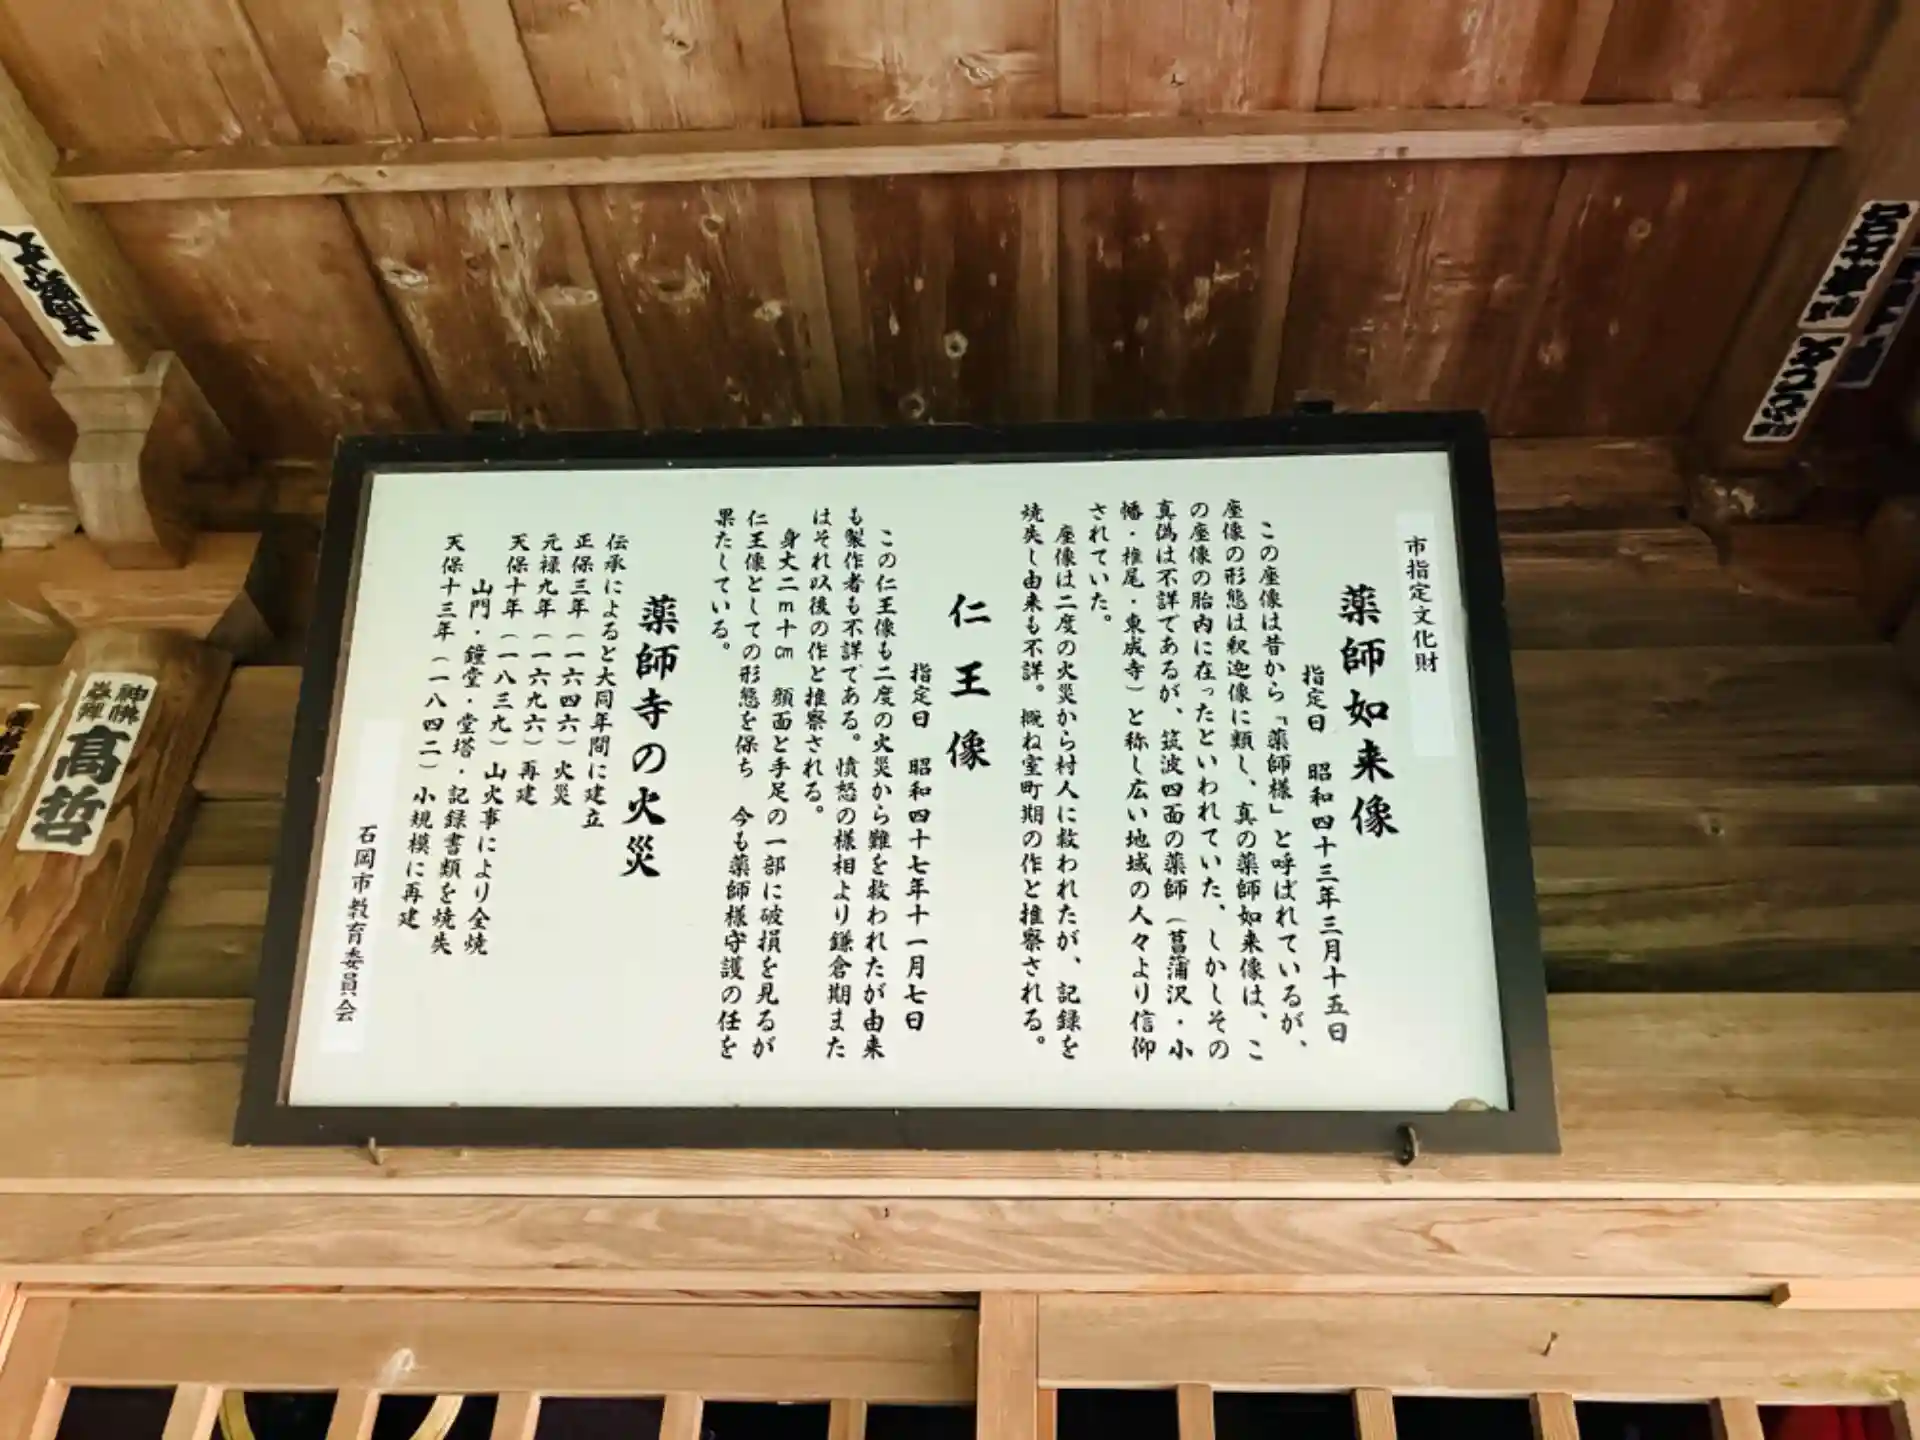 市指定文化財
薬師如来像
指定日 昭和四十三年三月十五日
この座像は昔から「薬師様」と呼ばれているが、
座像の形態は釈迦像に類し、真の薬師如来像は、こ
の座像の胎内に在ったといわれていた、しかしその
真偽は不詳であるが、筑波四面の薬師(菖蒲沢・小
幡・椎尾・東成寺)と称し広い地域の人々より信仰
されていた。
座像は二度の火災から村人に救われたが、記録を
焼失し由来も不詳。概ね室町期の作と推察される。
仁王像
指定日 昭和四十七年十一月七日
この仁王像も二度の火災から難を救われたが由来
も製作者も不詳である。憤怒の様相より鎌倉期また
はそれ以後の作と推察される。
身丈二m十㎝ 顔面と手足の一部に破損を見るが
仁王像としての形態を保ち 今も薬師様守護の任を
果たしている。
薬師寺の火災
伝承によると大同年間に建立
正保三年(一六四六)火災
元禄九年(一六九六)再建
天保十年(一八三九)山火事により全焼
山門・鐘堂・堂塔・記録書類を焼失
天保十三年(一八四二)小規模に再建
石岡市教育委員会
神佛
高哲